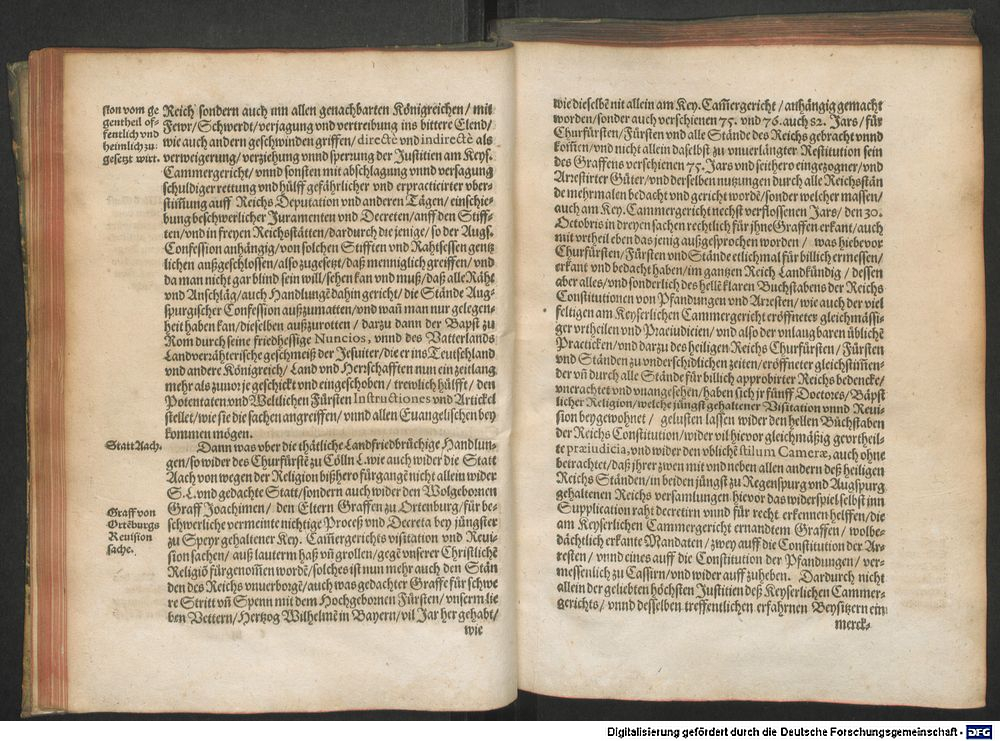 sion vom ge
gentheil of-
fentlich vnd
heimlich zu-
gesetzt wirt.
Reich sondern auch inn allen genachbarten Königreichen / mit
Fewr / Schwerdt / verjagung vnd vertreibung ins bittere Elend /
wie auch andern geschwinden griffen / directè vnd indirectè als
verweigerung / verziehung vnnd sperung der Justitien am Keys.
Cammergericht / vnnd sonsten mit abschlagung vnnd versagung
schuldiger rettung vnd hülff gefährlicher vnd erpracticirter vber-
stim̃ung auff Reichs Deputation vnd anderen Tägen / einschie-
bung beschwerlicher Juramenten vnd Decreten / auff den Stiff-
ten / vnd in freyen Reichsstätten / dardurch die jenige / so der Augs.
Confession anhängig / von solchen Stifften vnd Rahtsessen gentz
lichen außgeschlossen / also zugesetzt / daß menniglich greiffen / vnd
da man nicht gar blind sein will / sehen kan vnd muß / daß alle Räht
vnd Anschläg / auch Handlungẽ dahin gericht / die Stände Aug-
spurgischer Confession außzumatten / vnd wañ man nur gelegen-
heit haben kan / dieselben außzurotten / darzu dann der Bapst zu
Rom durch seine friedhessige Nuncios, vnnd des Vatterlands
Landverähterische geschmeiß der Jesuiter / die er ins Teutschland
vnd andere Königreich / Land vnd Herrschafften nun ein zeitlang
mehr als zuuor je geschickt vnd eingeschoben / trewlich hülfft / den
Potentaten vnd Weltlichen Fürsten Instructiones vnd Artickel
stellet / wie sie die sachen angreiffen / vnnd allen Euangelischen bey
kommen mögen.
Statt Aach.
Dann was vber die thätliche Landfriedbrüchige Handlun-
gen / so wider des Churfürstẽ zu Cölln L. wie auch wider die Statt
Aach von wegen der Religion bißhero fürgangẽ nicht allein wider
S. L. vnd gedachte Statt / sondern auch wider den Wolgebornen
Graff Joachimen / den Eltern Graffen zu Ortenburg / für be-
schwerliche vermeinte nichtige Proceß vnd Decreta bey jüngster
zu Speyr gehaltener Key. Cam̃ergerichts visitation vnd Reui-
sion sachen / auß lauterm haß vñ grollen / gegẽ vnserer Christlichẽ
Religiõ fürgenom̃en wordẽ / solches ist nun mehr auch den Stän
den des Reichs vnuerborgẽ / auch was gedachter Graffe für schwe
re Stritt vñ Spenn mit dem Hochgebornen Fürsten / vnserm lie
ben Vettern / Hertzog Wilhelmẽ in Bayern / vil Jar her gehabt /
wie
Graff von
Ortẽburgs
Reuision
sache.
wie dieselbe nit allein am Key. Cam̃ergericht / anhängig gemacht
worden / sonder auch verschienen 75. vnd 76. auch 82. Jars / für
Churfürsten / Fürsten vnd alle Stände des Reichs gebracht vnnd
kom̃en / vnd nicht allein daselbst zu vnuerlängter Restitution sein
des Graffens verschienen 75. Jars vnd seithero eingezogner / vnd
Arrestirter Güter / vnd derselben nutzungen durch alle Reichsstän
de mehrmalen bedacht vnd gericht wordẽ / sonder welcher massen /
auch am Key. Cammergericht nechst verflossenen Jars / den 30.
Octobris in dreyen sachen rechtlich für jhne Graffen erkant / auch
mit vrtheil eben das jenig außgesprochen worden / was hiebevor
Churfürsten / Fürsten vnd Stände etlichmal für billich ermessen /
erkant vnd bedacht haben / im gantzen Reich Landkündig / dessen
aber alles / vnd sonderlich des hellẽ klaren Buchstabens der Reichs
Constitutionen von Pfandungen vnd Arresten / wie auch der viel
feltigen am Keyserlichen Cammergericht eröffneter gleichmässi-
ger vrtheilen vnd Praeiudicien / vnd also der vnlangbaren üblichẽ
Practicken / vnd darzu des heiligen Reichs Churfürsten / Fürsten
vnd Ständen zu vnderschidlichen zeiten / eröffneter gleichstim̃en-
der vñ durch alle Stände für billich approbirter Reichs bedencke /
vnerachtet vnd vnangesehen / haben sich jr fünff Doctores / Bäpst
licher Religion / welche jüngst gehaltener Visitation vnnd Reui-
sion beygewohnet / gelusten lassen wider den hellen Büchstaben
der Reichs Constitution / wider vil hievor gleichmäßig gevrtheil-
te præiudicia, vnd wider den vblichẽ stilum Cameræ, auch ohne
betrachtet / daß jhrer zwen mit vnd neben allen andern deß heiligen
Reichs Ständen / in beiden jüngst zu Regenspurg vnd Augspurg
gehaltenen Reichs versamlungen hievor das widerspiel selbst jnn
Supplication raht decretirn vnnd für recht erkennen helffen / die
am Keyserlichen Cammergericht ernandtem Graffen / wolbe-
dächtlich erkante Mandaten / zwey auff die Constitution der Ar-
resten / vnnd eines auff die Constitution der Pfandungen / ver-
messenlich zu Cassirn / vnd wider auff zuheben. Dardurch nicht
allein der geliebten höchsten Justitien deß Keyserlichen Cammer-
gerichts / vnnd desselben treffentlichen erfahrnen Beysitzern ein
merck-
Digitalisierung gefördert durch die Deutsche Forschungsgemeinschaft - DFG